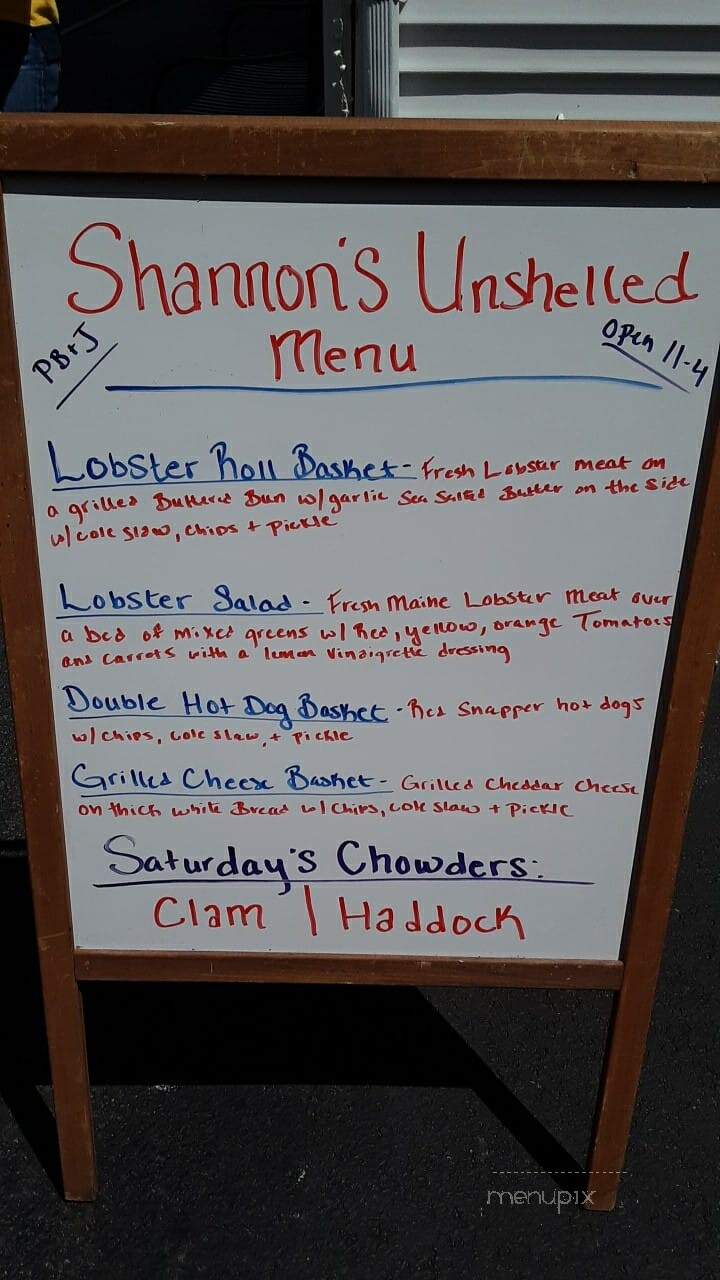 Shannon's Unshelled
Menu
PB+J
Open 11-4
Lobster Roll Basket - Fresh Lobster meat on
a grilled Buttered Bun w/garlic Sea Salted Butter on the side
w/cole slaw, chips + pickle
Lobster Salad - Fresh Maine Lobster Meat over
a bed of mixed greens w/ Red, yellow, orange Tomatoes
and carrots with a lemon vinaigrette dressing
Double Hot Dog Basket - Red Snapper hot dogs
w/chips, cole slaw, + pickle
Grilled Cheese Basket - Grilled Cheddar cheese
on thick white Bread w/ chips, cole slaw + pickle
Saturday's Chowders:
Clam | Haddock
menupix